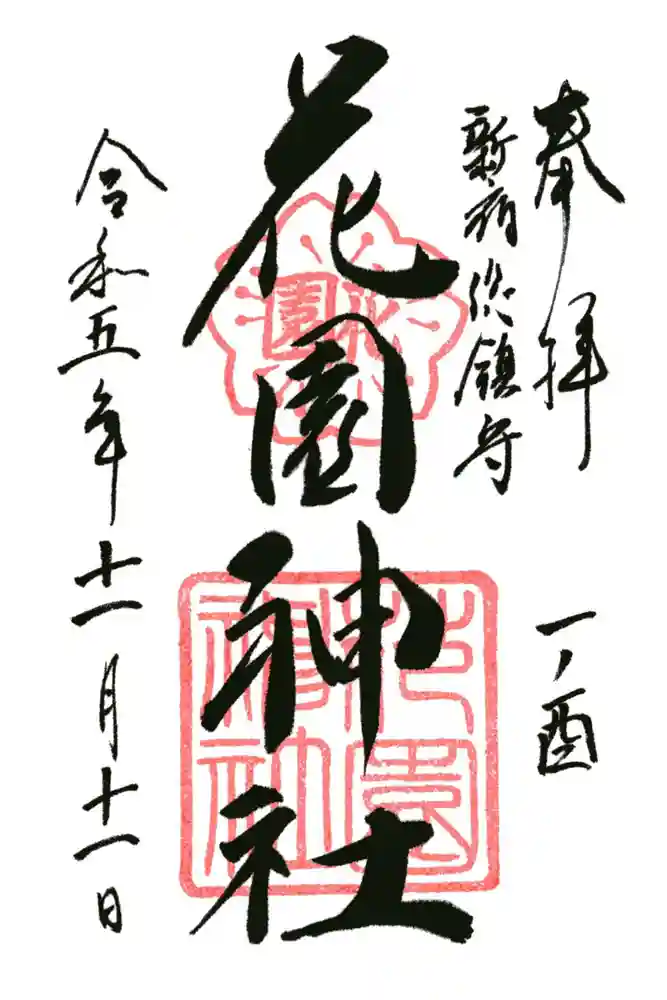 奉拝
新宿総鎮守
一ノ酉
花園神社
花園
花園神社
令和五年十一月十一日